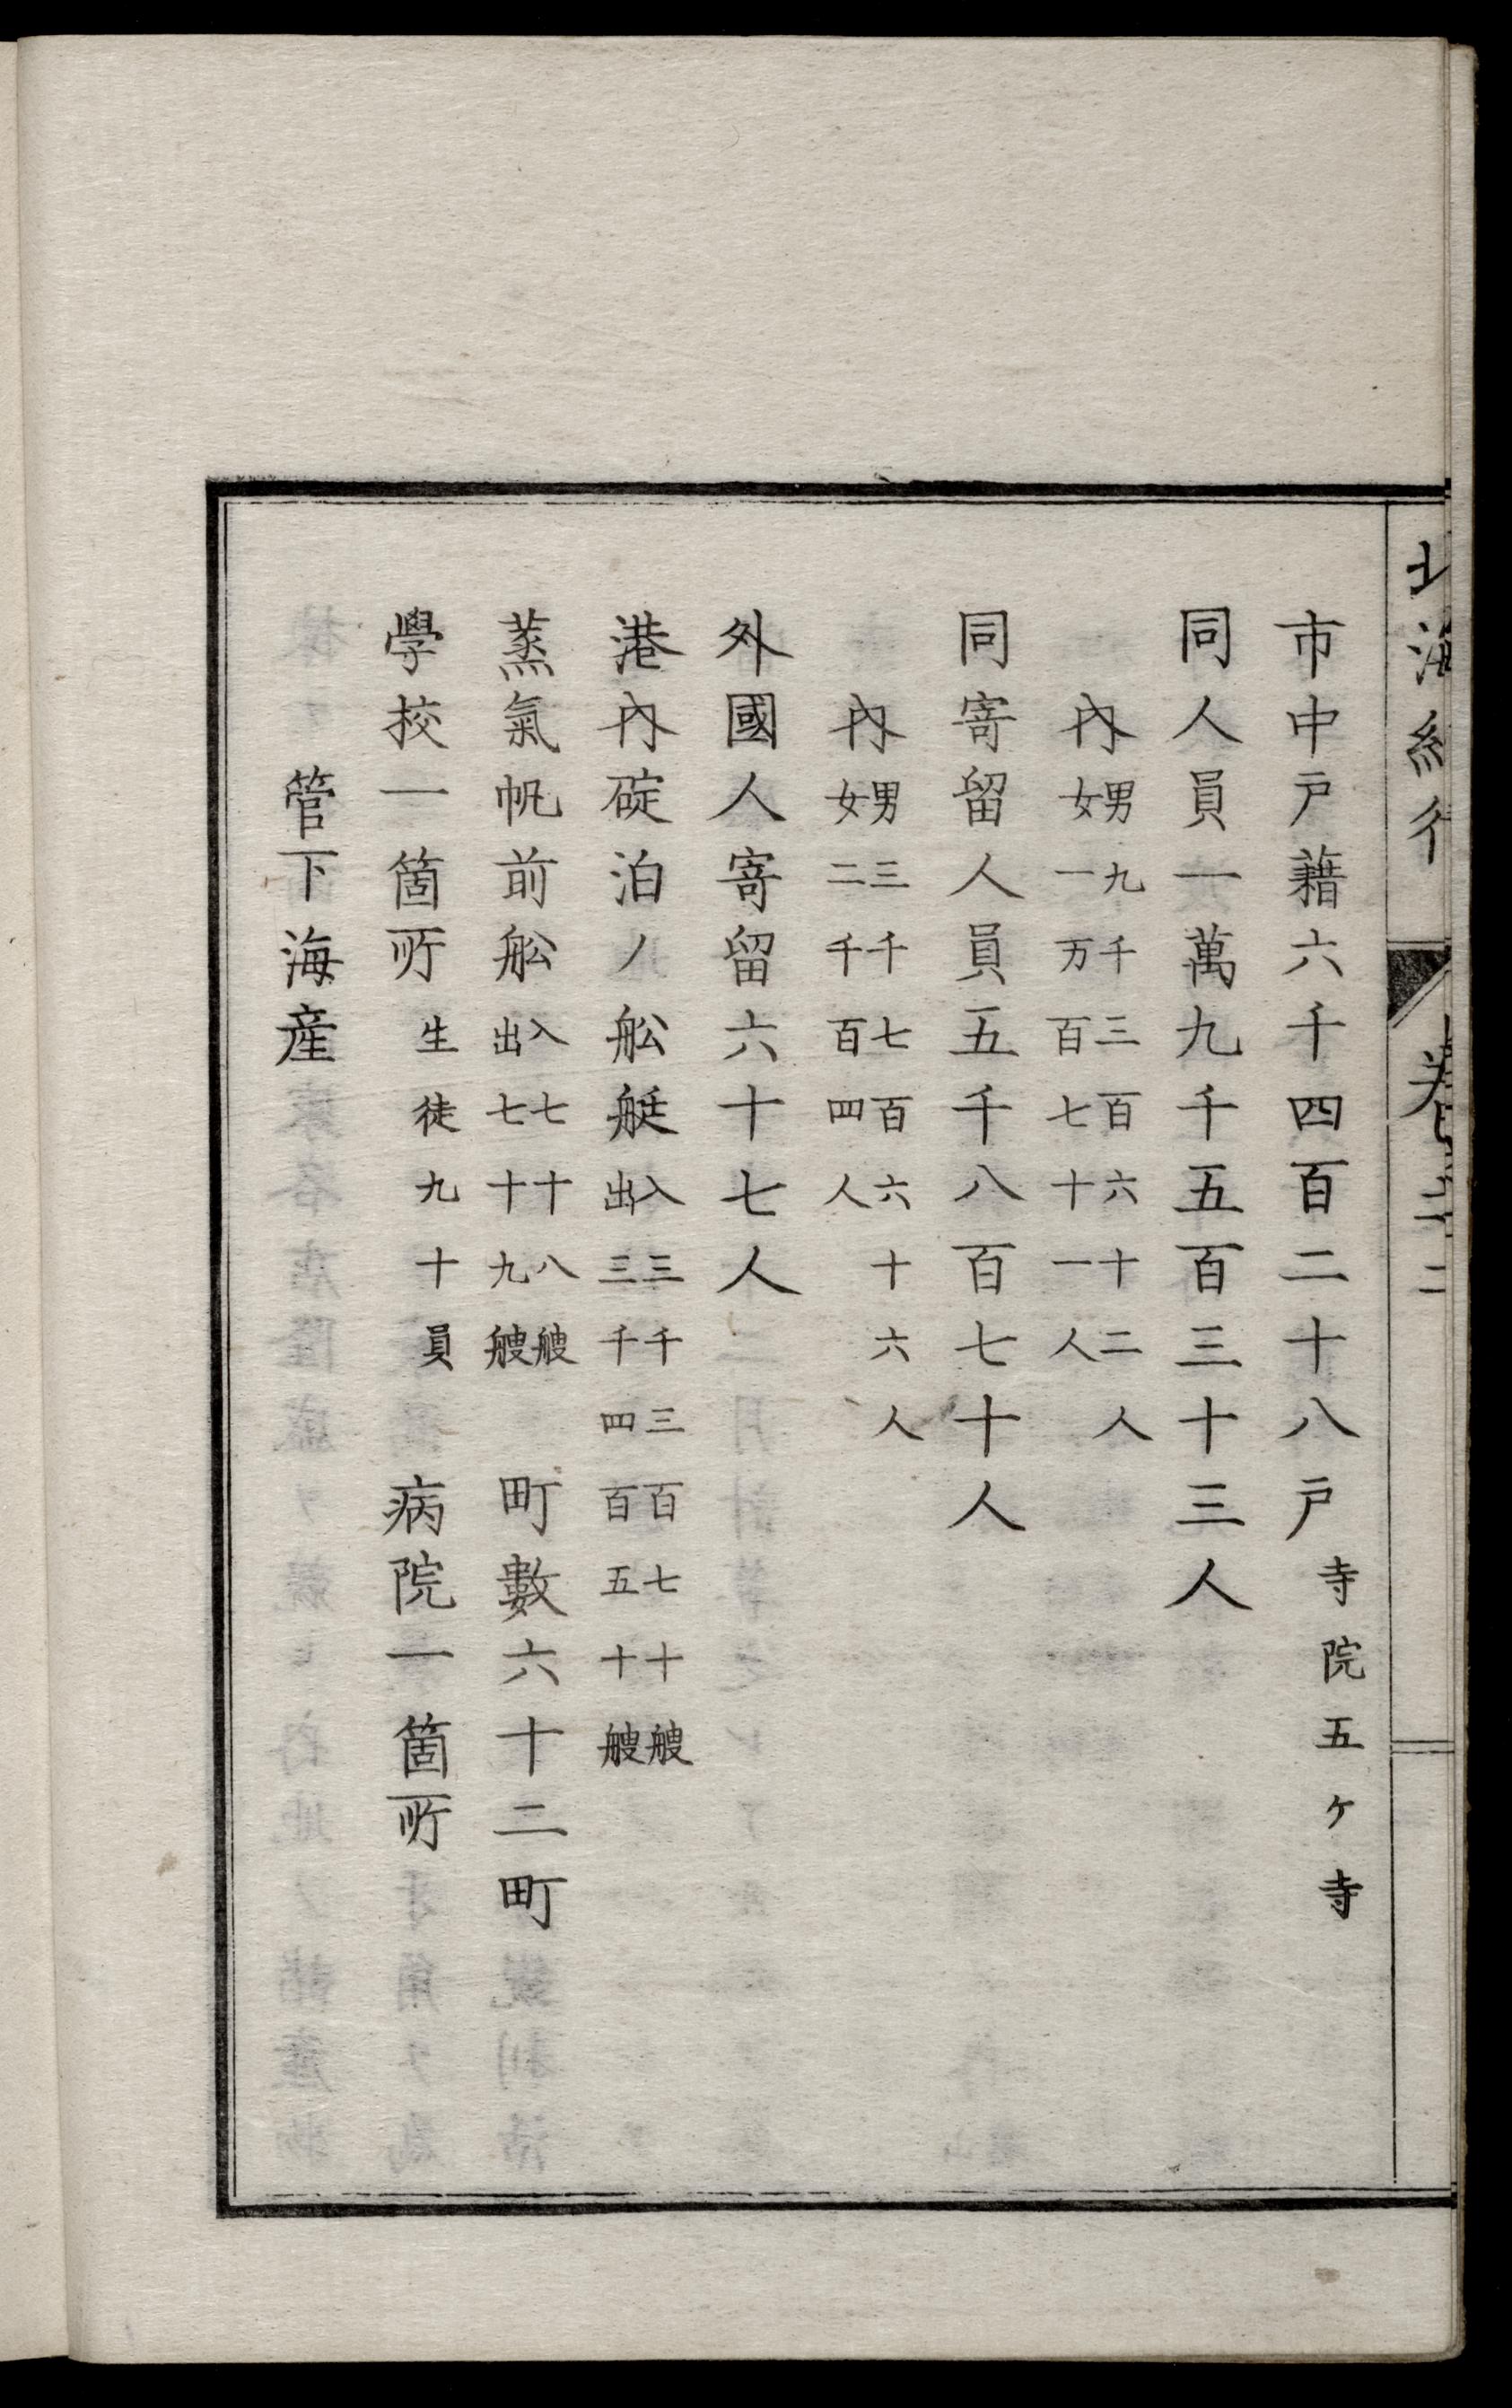 北海紀行 卷之二
市中戸藉六千四百二十八戸 寺院五ケ寺
同人員一萬九千五百三十三人
內 男九千三百六十二人
女一万百七十一人
同寄留人員五千八百七十人
內 男三千七百六十六人
女二千百四人
外國人寄留六十七人
港內碇泊ノ舩艇 入三千三百七十艘
出三千四百五十艘
蒸氣帆前舩 入七十八艘
出七十九艘
町數六十二町
學挍一箇所 生徒九十員 病院一箇所
管下海産